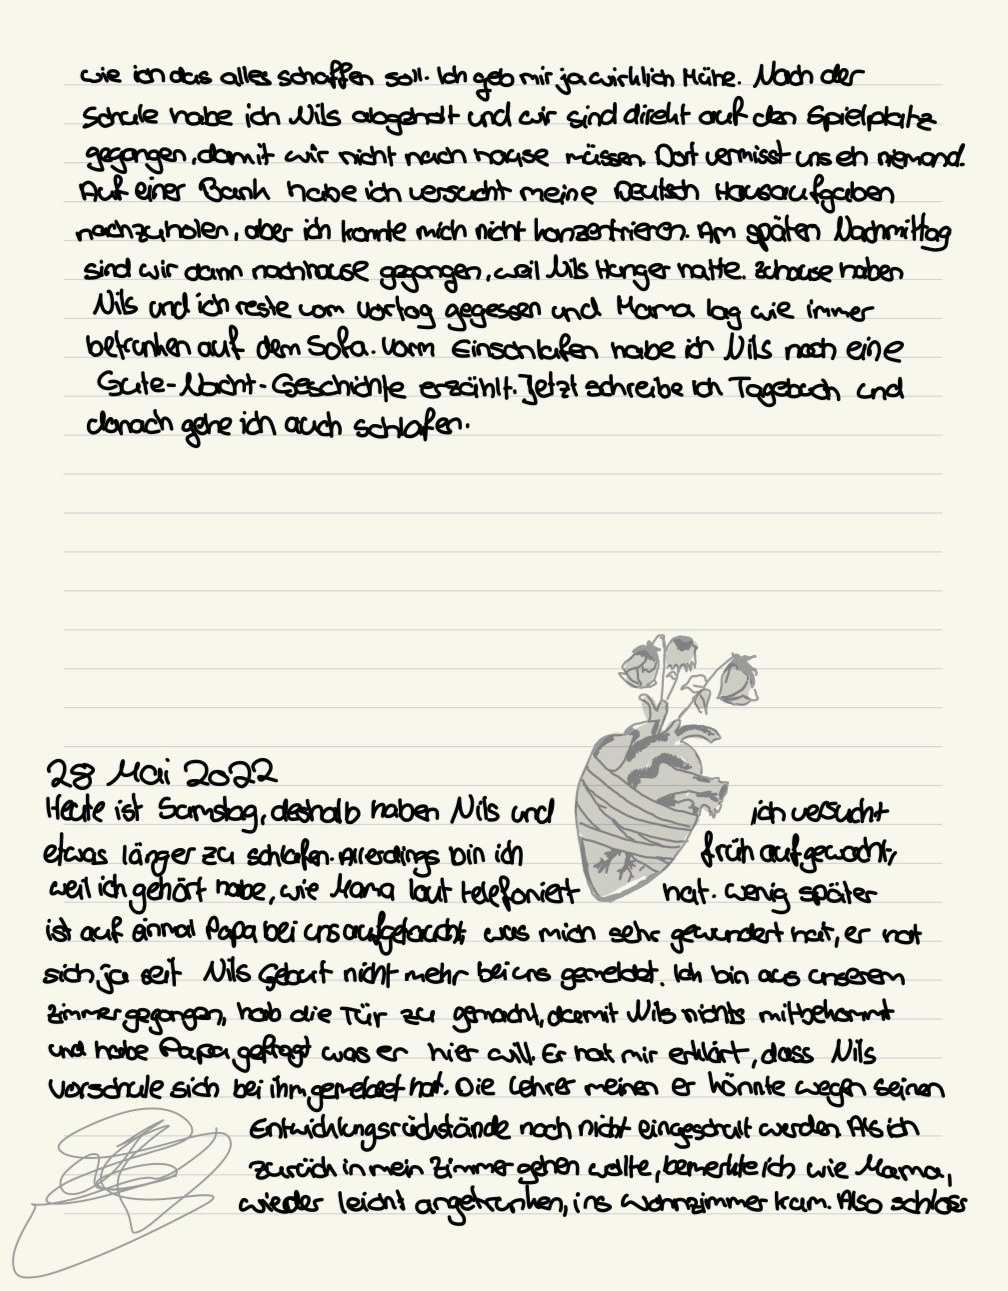 wie ich das alles schaffen soll. Ich geb mir ja wirklich Mühe. Nach der
Schule habe ich Nils abgeholt und wir sind direkt auf den Spielplatz
gegangen, damit wir nicht nach hause müssen. Dort vermisst uns eh niemand.
Auf einer Bank habe ich versucht meine Deutsch Hausaufgaben
nachzuholen, aber ich konnte mich nicht konzentrieren. Am späten Nachmittag
sind wir dann nachhause gegangen, weil Nils Hunger hatte. Zuhause haben
Nils und ich reste vom Vortag gegessen und Mama lag wie immer
betrunken auf dem Sofa. Vorm Einschlafen habe ich Nils noch eine
Gute-Nacht-Geschichte erzählt. Jetzt schreibe ich Tagebuch und
danach gehe ich auch schlafen.
28 Mai 2022
Heute ist Samstag, deshalb haben Nils und ich versucht
etwas länger zu schlafen. Allerdings bin ich früh aufgewacht,
weil ich gehört habe, wie Mama laut telefoniert hat. Wenig später
ist auf einmal Papa bei uns aufgetaucht, was mich sehr gewundert hat, er hat
sich ja seit Nils Geburt nicht mehr bei uns gemeldet. Ich bin aus unserem
Zimmer gegangen, hab die Tür zu gemacht, damit Nils nichts mitbekommt
und habe Papa gefragt was er hier will. Er hat mir erklärt, dass Nils
Vorschule sich bei ihm gemeldet hat. Die Lehrer meinen er könnte wegen seinen
Entwicklungsrückstände noch nicht eingeschult werden. Als ich
zurück in mein Zimmer gehen wollte, bemerkte ich wie Mama,
wieder leicht angetrunken, ins Wohnzimmer kam. Also schloss